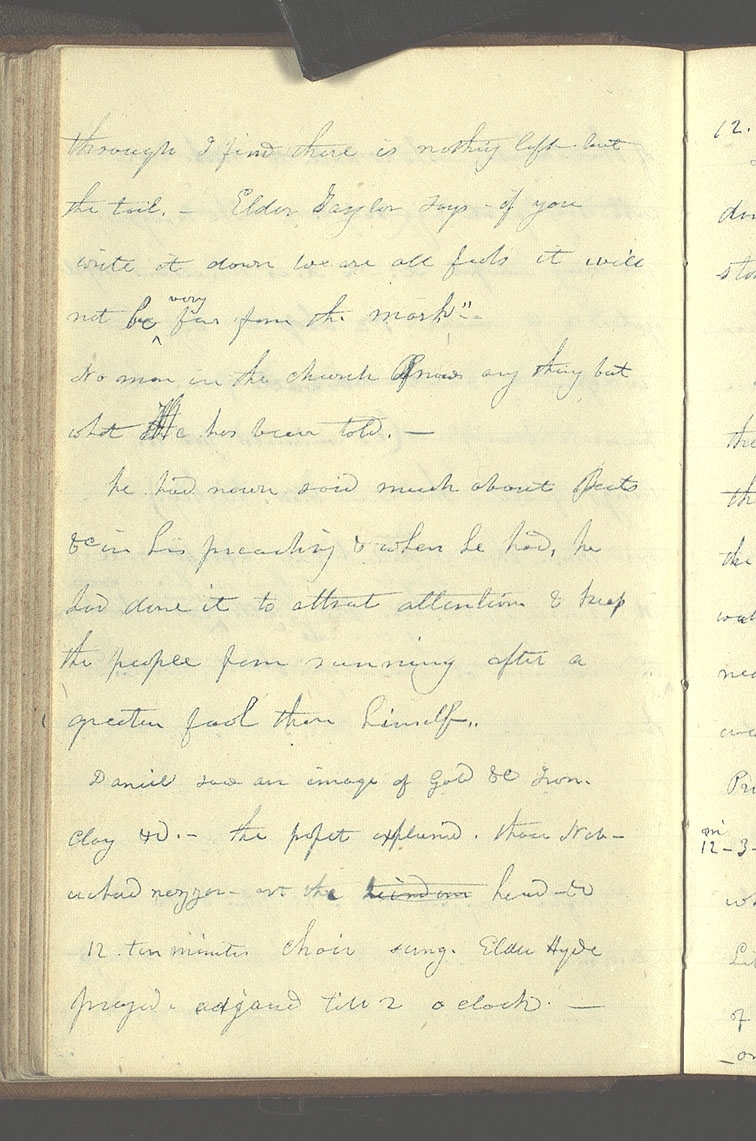 through I find there is nothig left but
the tail. — Elder Taylor says - if you
write it down we are all fools it will
not be very far from the mark"..
No man in the church knows any thing but
what He has been told. —
he had never said much about Beasts
&c in his preaching & when he had, he
had done it to attract attention & keep
the people from running after a
greater fool than himself..
Daniel saw an image of Gold &c Iron.
clay &c. — the prophet explained. thou Neb-
uchadnezzar - art the kingdom head - &c
12. ten minutes choir sung. Elder Hyde
prayed. adjourned till 2 o clock. —
12.
the
th
the
Pri
12-3-
of